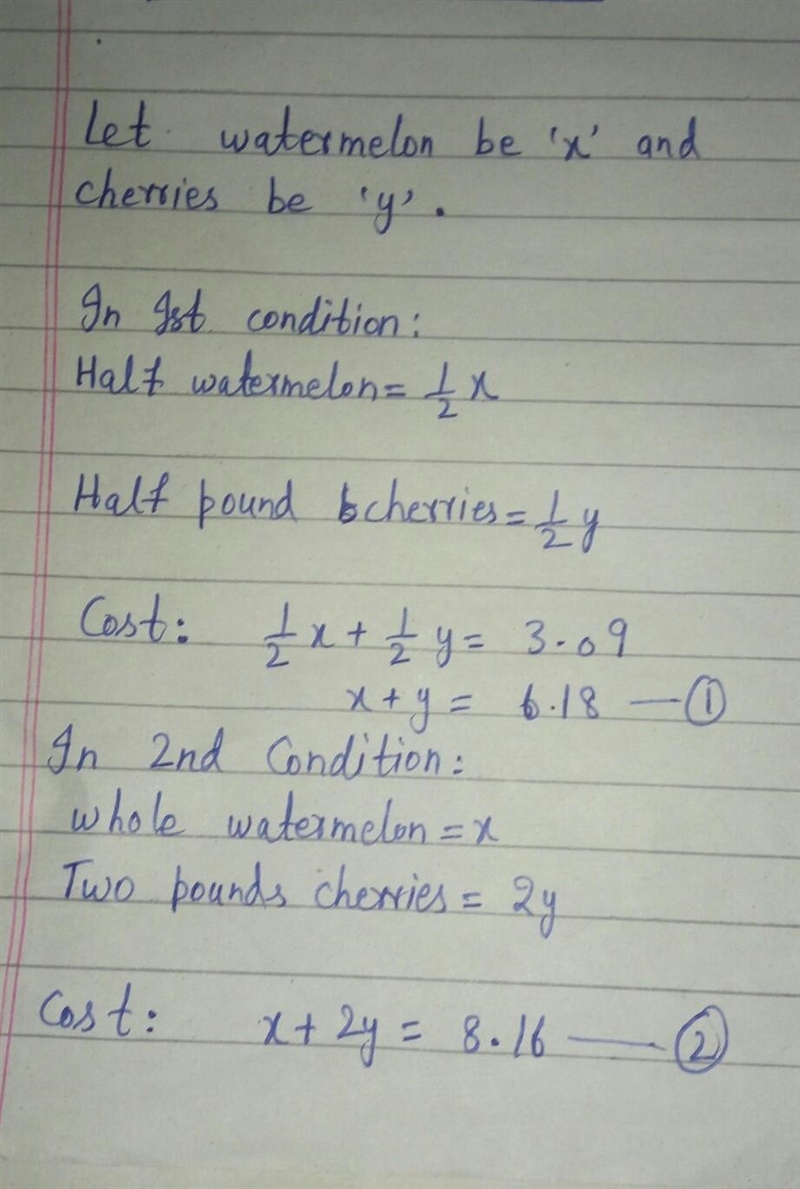 Let watermelon be 'x' and
cherries be 'y'.
In Ist condition:
Half watermelon = 1/2 x
Half pound cherries = 1/2 y
Cost: 1/2 x + 1/2 y = 3.09
x + y = 6.18 — ①
In 2nd Condition:
whole watermelon = x
Two pounds cherries = 2y
Cost: x + 2y = 8.16 — ②